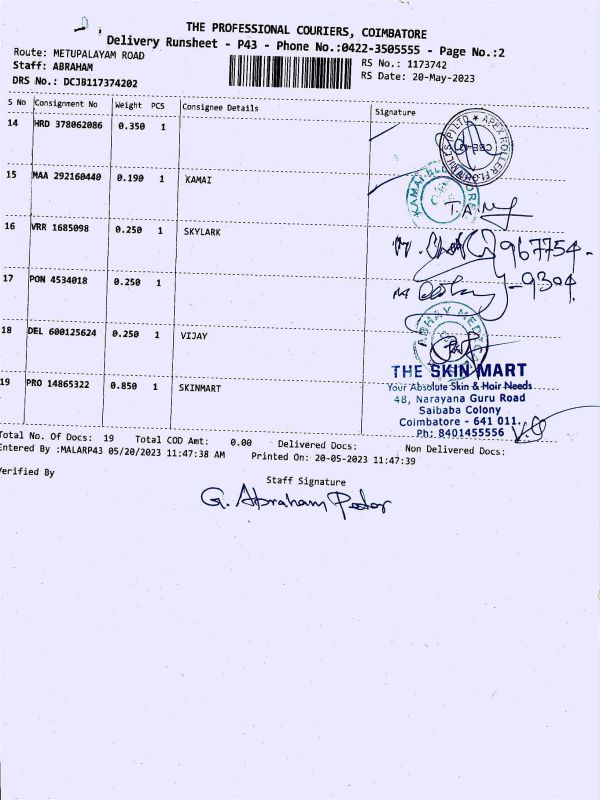 THE PROFESSIONAL COURIERS, COIMBATORE
Delivery Runsheet - P43 - Phone No.:0422-3505555 - Page No.:2
Route: METUPALAYAM ROAD
Staff: ABRAHAM
DRS No.: DCJB117374202
RS No.: 1173742
RS Date: 20-May-2023
S No Consignment No Weight PCS Consignee Details Signature
14 HRD 378062086 0.350 1
15 MAA 292160440 0.190 1 KAMAI
16 VRR 1685098 0.250 1 SKYLARK
967754-
17 PON 4534018 0.250 1
-9304
18 DEL 600125624 0.250 1 VIJAY
19 PRO 14865322 0.850 1 SKINMART
THE SKIN MART
Your Absolute Skin & Hair Needs
48, Narayana Guru Road
Saibaba Colony
Coimbatore - 641 011.
Ph: 8401455556
Total No. Of Docs: 19 Total COD Amt: 0.00 Delivered Docs: Non Delivered Docs:
Entered By :MALARP43 05/20/2023 11:47:38 AM Printed On: 20-05-2023 11:47:39
Verified By
Staff Signature
G. Abraham Peter